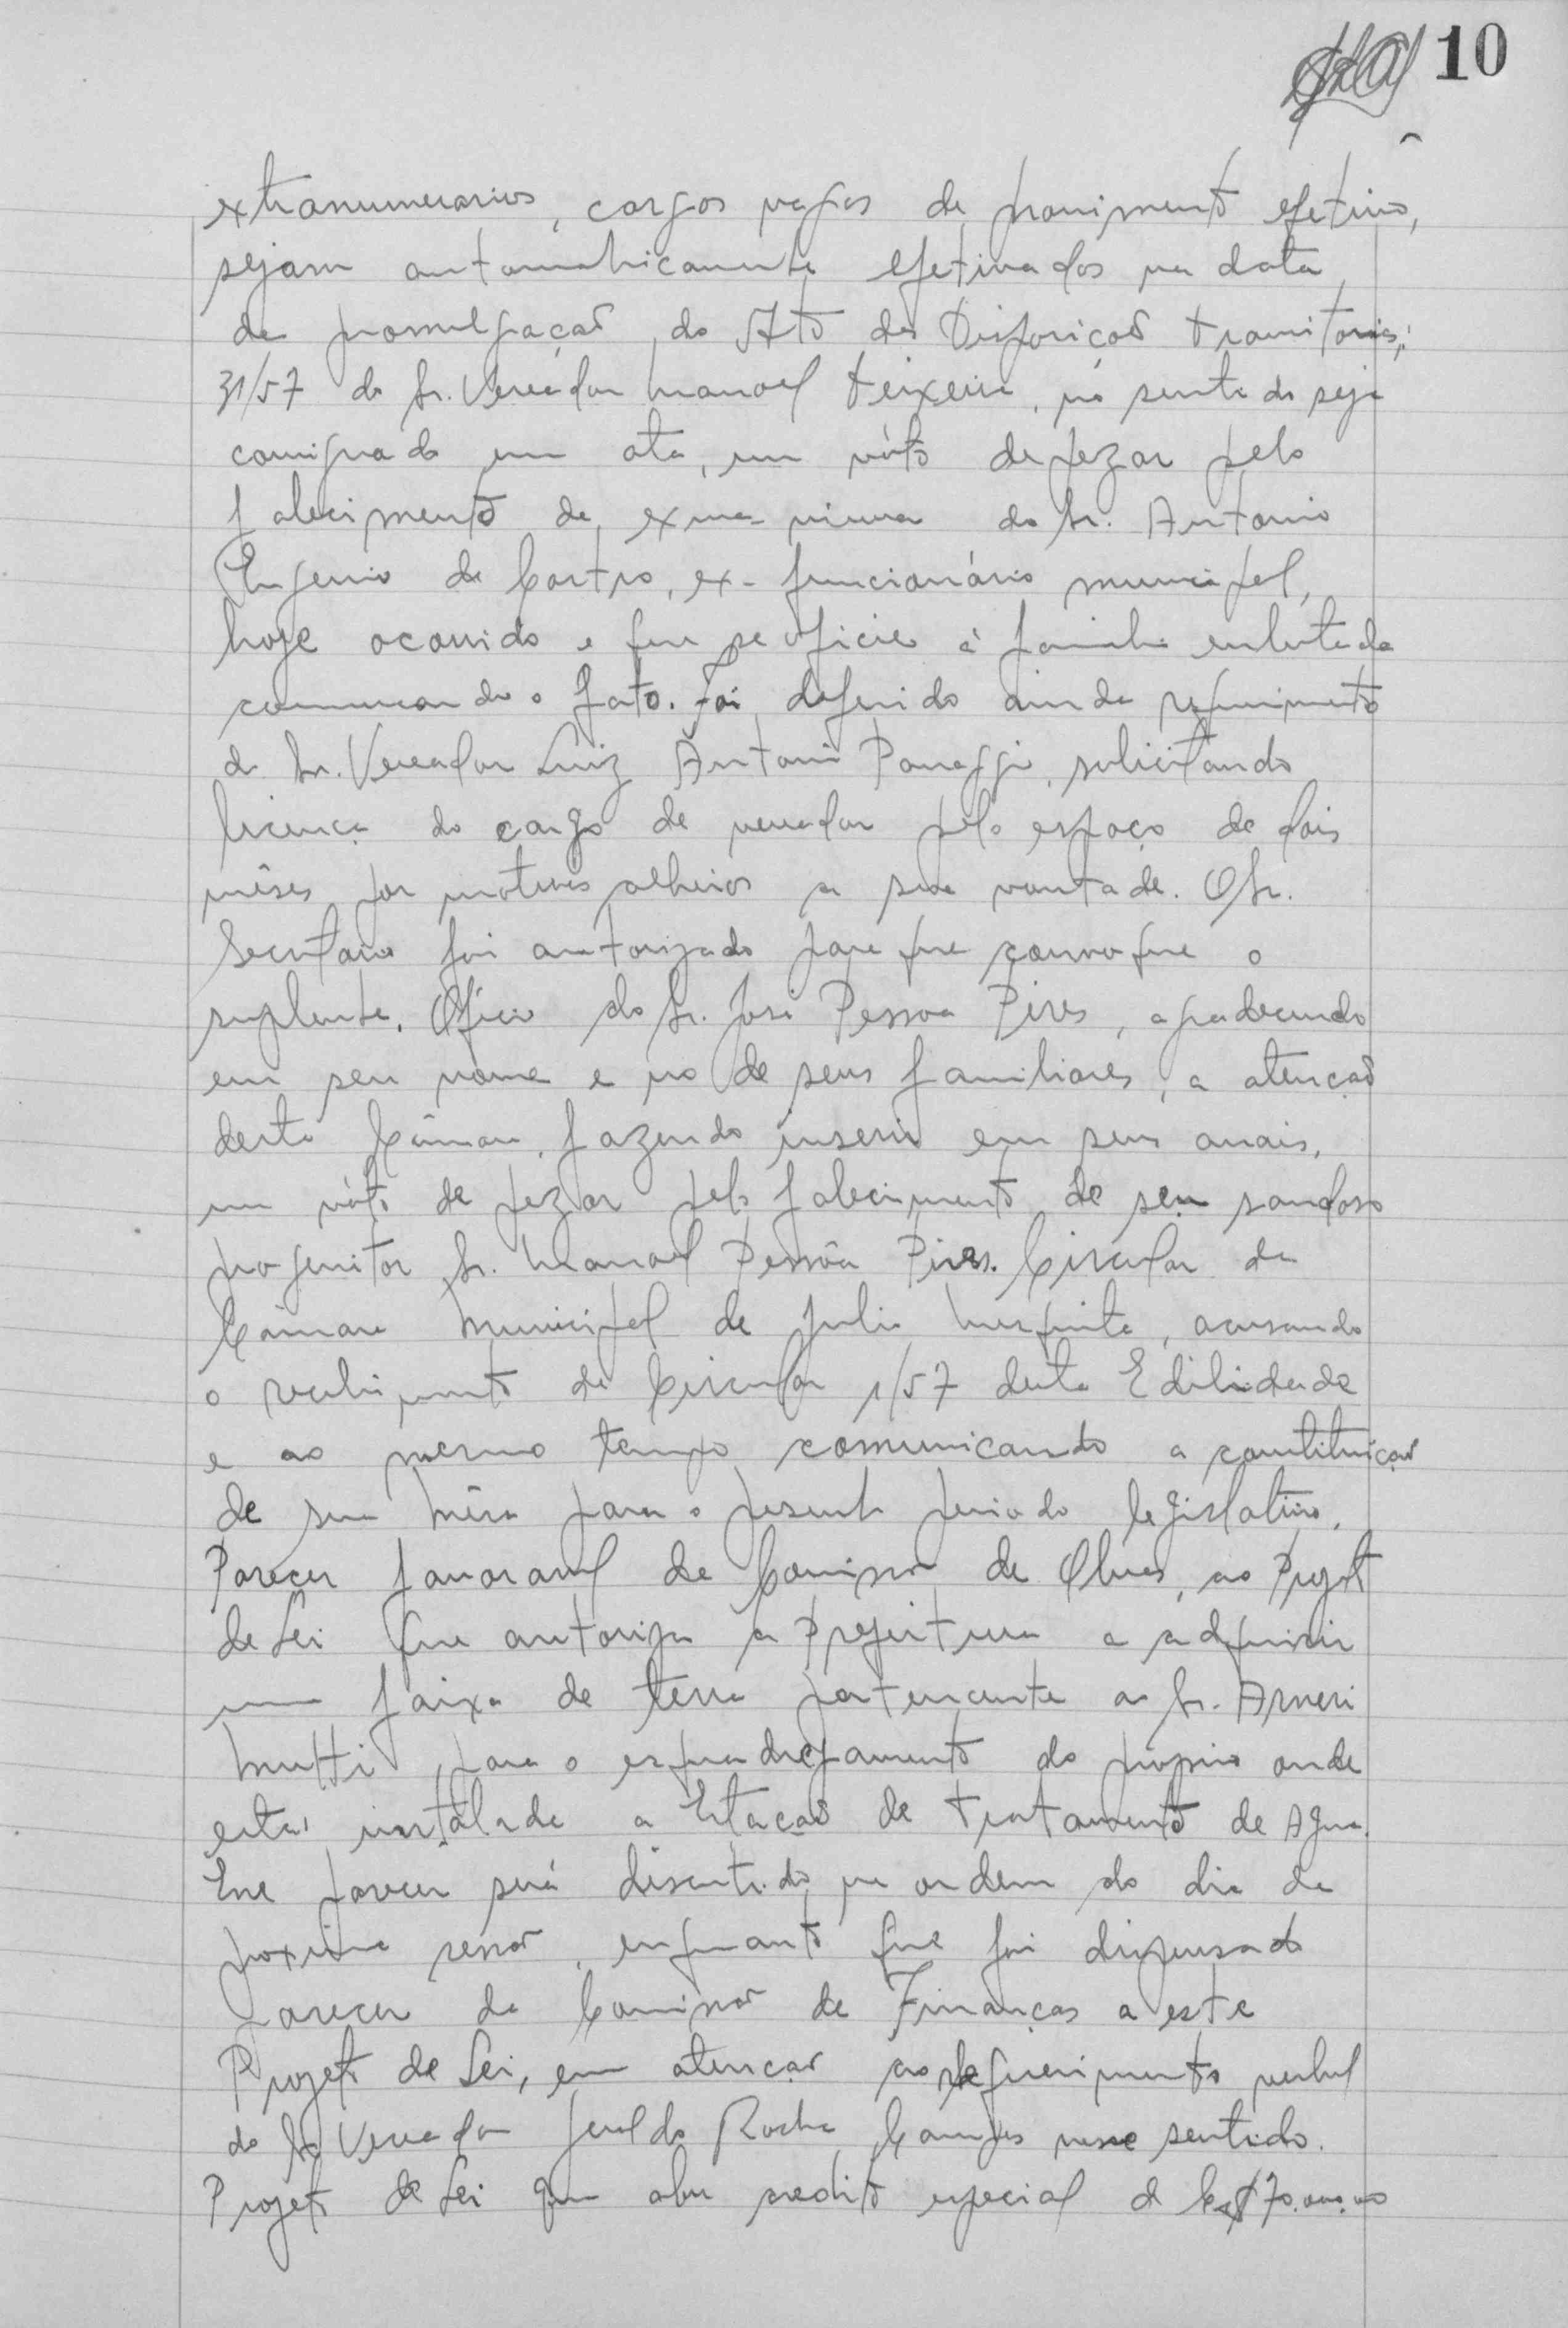 10
extranumerarios, cargos vagos de provimento efetivo,
sejam automaticamente efetivados na data
da promulgação do Ato das Disposições transitorias;
31/57 do Sr. Vereador Manoel Teixeira, no sentido seja
consignado em ata, um vóto de pezar pelo
falecimento da exma viuva do Sr. Antonio
Eugenio de Castro, ex-funcionário municipal,
hoje ocorrido e que se oficie à familia enlutada
comunicando o fato. Foi deferido ainda requerimento
do Sr. Vereador Luiz Antonio, solicitando
licença do cargo de vereador pelo espaço de dois
mêses por motivos alheios a sua vontade. O Sr.
Secretario foi autorizado para que convoque o
suplente. Oficio do Sr. José Pessoa Pires, agradecendo
em seu nome e no de seus familiares, a atenção
desta Câmara, fazendo inserir em seus anais,
um vóto de pezar pelo falecimento de seu saudoso
progenitor Sr. Manoel Pessôa Pires. Circular da
Câmara Municipal de Julio Mesquita, acusando
o recebimento da Circular 1/57 desta Edilidade
e ao mesmo tempo comunicando a constituição
de sua Mêsa para o presente periodo legislativo.
Parecer favoravel da Comissão de Obras, ao Projeto
de Lei que autoriza a Prefeitura a adquirir
uma faixa de terra pertencente ao Sr. Arneri
Mutti para o esquadrejamento do próprio onde
está instalada a Estação de Tratamento de Agua.
Esse parecer será discutido na ordem do dia da
proxima sessão, enquanto que foi dispensado
parecer da Comissão de Finanças a este
Projeto de Lei, em atenção ao requerimento verbal
do Sr. Vereador Geraldo Rocha Campos nesse sentido.
Projeto de Lei que abre credito especial de Cr$ 70.000.00